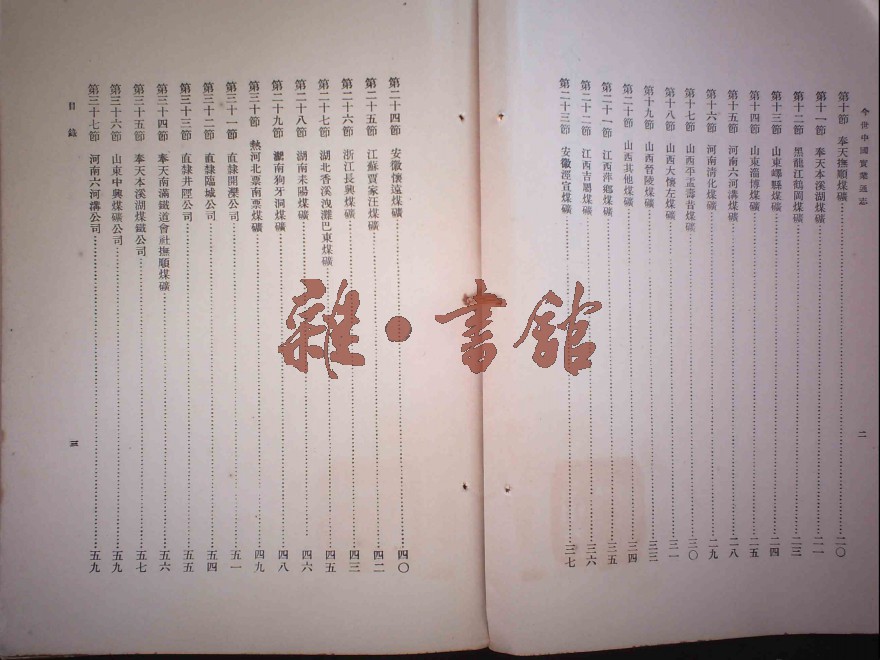 今世中國實業通志
二
第十節 奉天撫順煤礦 二〇
第十一節 奉天本溪湖煤礦 二一
第十二節 黑龍江鶴岡煤礦 二三
第十三節 山東嶧縣煤礦 二四
第十四節 山東淄博煤礦 二五
第十五節 河南六河溝煤礦 二八
第十六節 河南清化煤礦 二九
第十七節 山西平盂壽昔煤礦 三〇
第十八節 山西大懷左煤礦 三一
第十九節 山西晉陵煤礦 三三
第二十節 山西其他煤礦 三四
第二十一節 江西萍鄉煤礦 三五
第二十二節 江西吉屬煤礦 三六
第二十三節 安徽涇宣煤礦 三七
第二十四節 安徽懷遠煤礦 四〇
第二十五節 江蘇賈家汪煤礦 四二
第二十六節 浙江長興煤礦 四三
第二十七節 湖北香溪洩灘巴東煤礦 四五
第二十八節 湖南耒陽煤礦 四六
第二十九節 湖南狗牙洞煤礦 四八
第三十節 熱河北票南票煤礦 四九
第三十一節 直隸開灤公司 五一
第三十二節 直隸臨城公司 五四
第三十三節 直隸井陘公司 五五
第三十四節 奉天南滿鐵道會社撫順煤礦 五六
第三十五節 奉天本溪湖煤鐵公司 五七
第三十六節 山東中興煤礦公司 五九
第三十七節 河南六河溝公司 五九
目錄
三
雜·書館